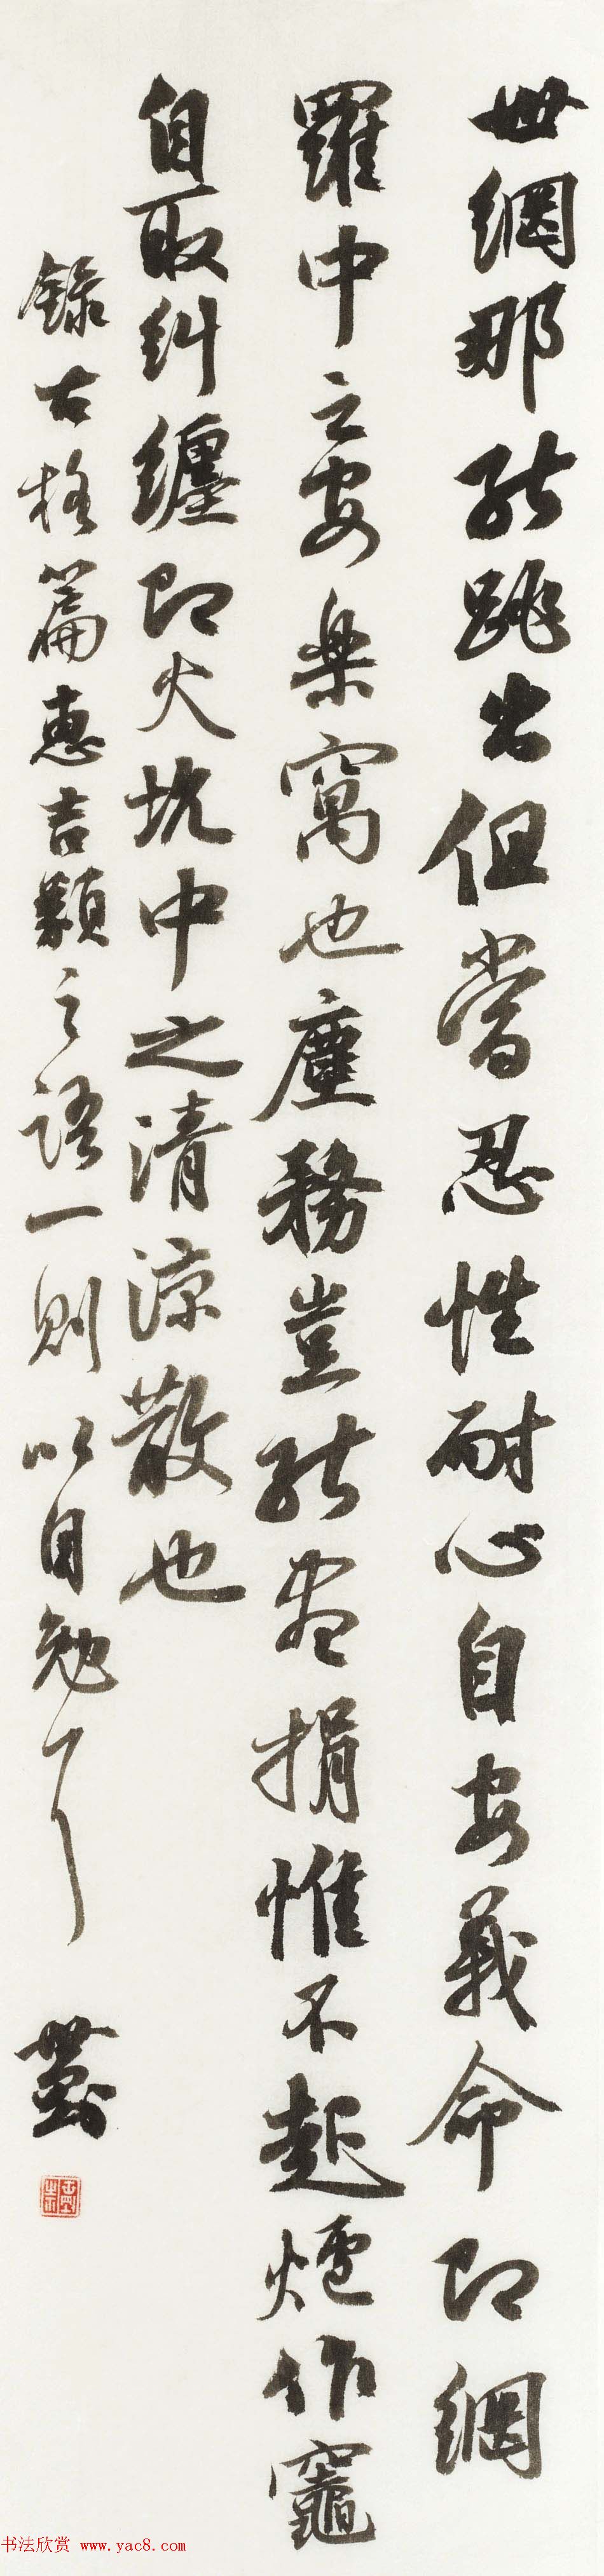 世網那能跳出但當忍性耐心自安義命即網
羅中之安樂窩也塵務豈能盡捐惟不起爐作竈
自取糾纏即火坑中之清涼散也
錄古格篇惠吉類之語一則以自勉
书法欣赏 www.yac8.com